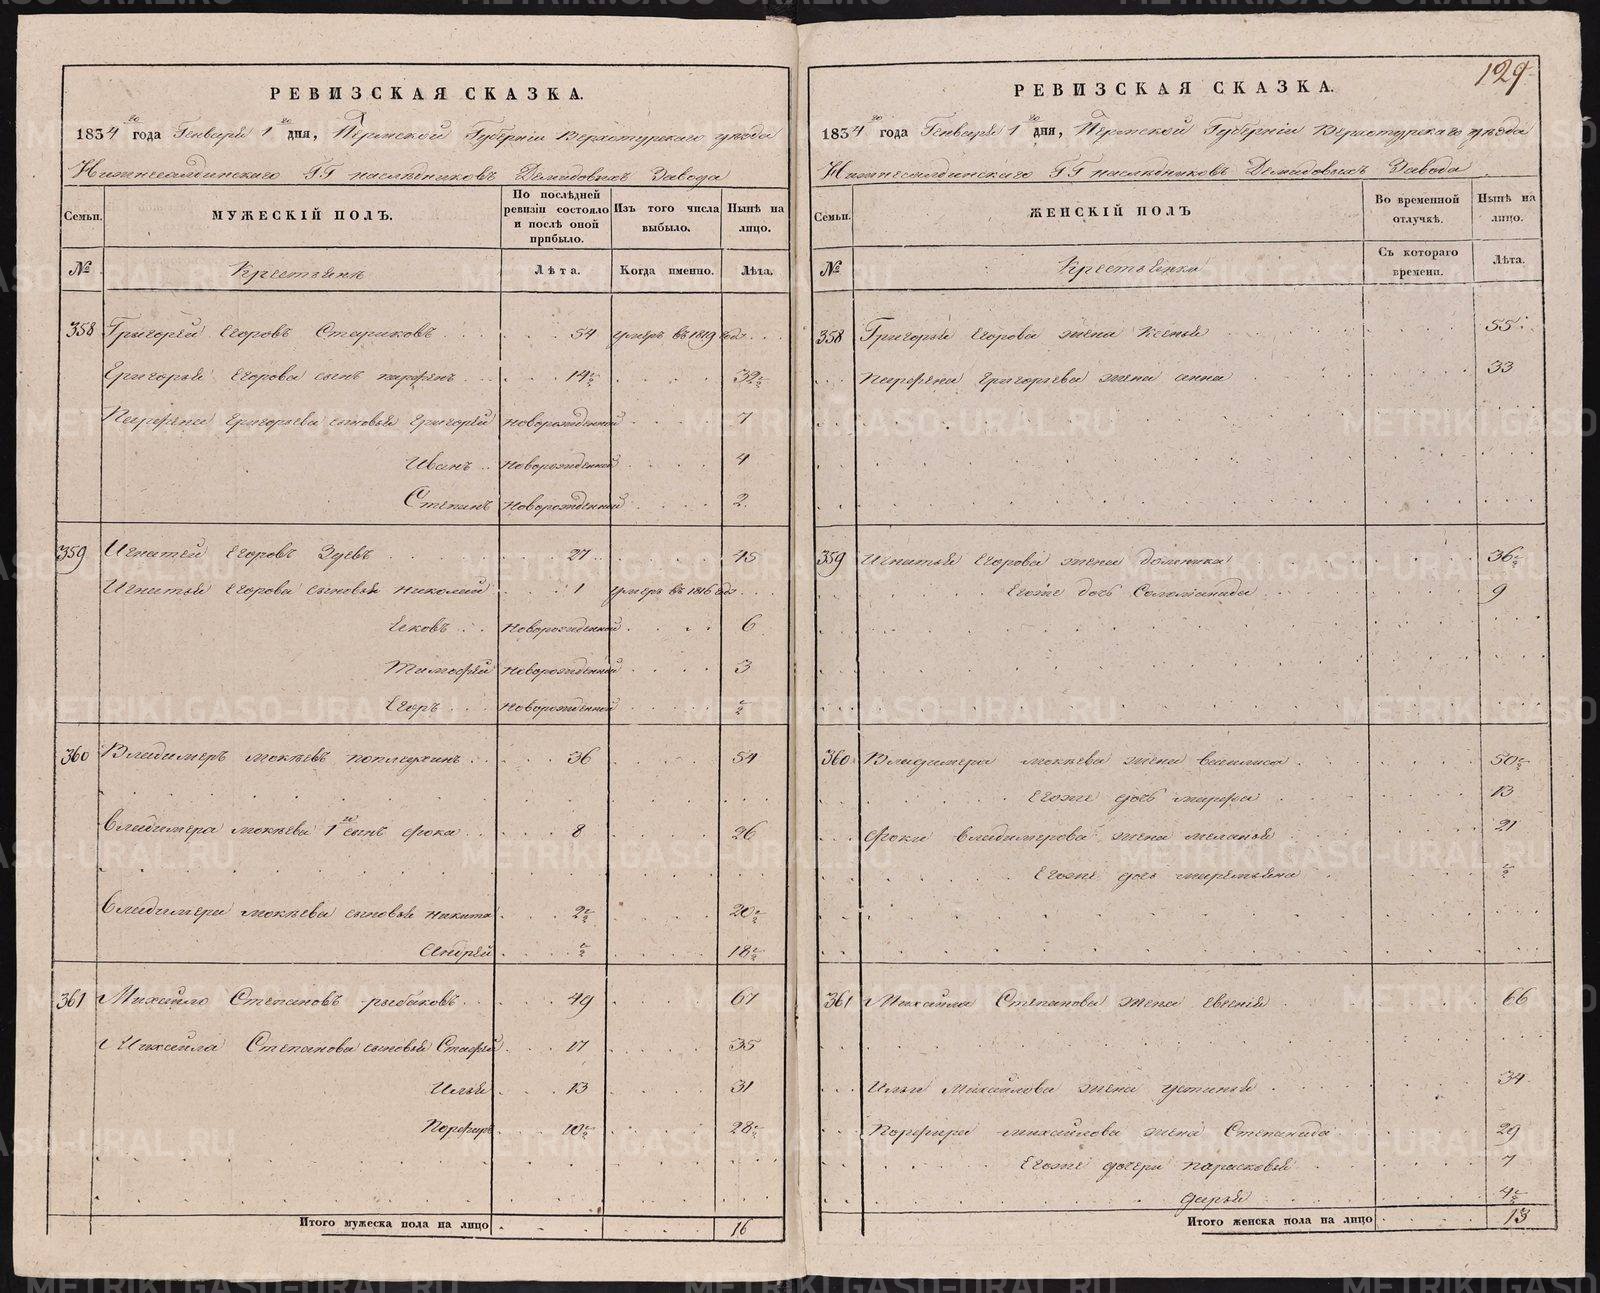 РЕВИЗСКАЯ СКАЗКА.
1834го года Генваря 1го дня, Пермской Губерніи Верхотурскаго уезда
Нижнесалдинскаго Г.Г наслѣдниковъ Демидовыхъ Завода
Семьи. МУЖЕСКІЙ ПОЛЪ. По послѣдней ревизіи состояло и послѣ оной прибыло. Изъ того числа выбыло. Нынѣ на лицо.
№ Крестьянъ Лѣта. Когда именно. Лѣта.
358 Григорей Егоровъ Стариковъ 54 умеръ въ 1819 году
Григорья Егорова сынъ парфенъ 14½ 32½
Парфена Григорьева сыновья Григорей новорожденной 7
Иванъ новорожденной 4
Степанъ новорожденной 2
359 Игнатей Егоровъ Зуевъ 27 45
Игнатья Егорова сыновья николай 1 умеръ въ 1816 году
Яковъ новорожденной 6
Тимофей новорожденной 3
Егоръ новорожденной ½
360 Владимеръ мокѣевъ 36 54
Владимера мокѣева 1го сынъ фока 8 26
Владимера мокѣева сыновья никита 2½ 20½
Андрей ½ 18½
361 Михайло Степановъ рыбаковъ 49 67
Михайла Степанова сыновья 17 35
Илья 13 31
Порфиръ 10½ 28½
Итого мужеска пола на лицо 16
129
РЕВИЗСКАЯ СКАЗКА.
1834го года Генваря 1го дня, Пермской Губерніи Верхотурскаго уезда
Нижнесалдинскаго Г.Г наслѣдниковъ Демидовыхъ Завода
Семьи. ЖЕНСКІЙ ПОЛЪ Во временной отлучкѣ. Нынѣ на лицо.
№ Крестьянка Съ котораго времени. Лѣта.
358 Григорья Егорова жена Ксенья 55
Парфена Григорьева жена анна 33
359 Игнатья Егорова жена домника 36½
Егоже дочь Соломанида 9
360 Владимера мокѣева жена василиса 50½
Егоже дочь марфа 13
фоки владимерова жена меланья 21
Егоже дочь маремьяна ½
361 Михайла Степанова жена евгенія 66
Ильи Михайлова жена устинья 34
Порфира михайлова жена Степанида 29
Егоже дочери парасковья 7
дарья 4½
Итого женска пола на лицо 13
METRIKI.GASO-URAL.RU